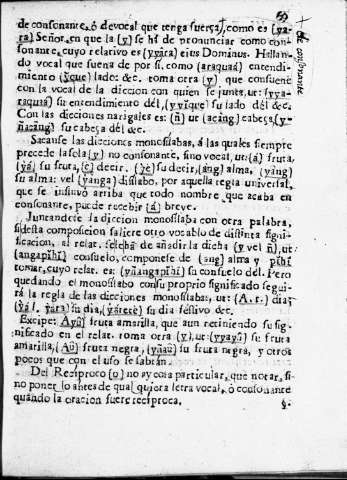 de consonante, ó de vocal que tenga fuerça), como es (ya-
ra) Señor, en que la (y) se há de pronunciar como con-
sonante, cuyo relativo es (yyâra) eius Dominus. Hallan-
do vocal que suena de por si, como (araquaá) entendi-
miento (ỹque) lado: &c. toma otra (y) que consuene
con la vocal de la diccion con quien se junta, ut: (yya-
raquaá) su entendimiento dél, (yyĩque) su lado dél &c.
Con las dicciones narigales es: (ñ) ut (acáng) cabeça, (y-
ñacáng) su cabeça dél &c.
Sacanse las dicciones monosilabas, á las quales siempre
precede la sola (y) no consonante, sino vocal, ut: (á) fruta,
(yá) su fruta, (e) decir. (yè) su decir, (áng) alma, (yáng)
su alma: vel (yánga) disilabo, por aquella regla universal,
que se insinuó arriba que todo nombre que acaba en
consonante, puede recebir (á) breve.
Juntandose la diccion monosilaba con otra palabra,
si desta composicion saliere otro vocablo de distinta signi-
ficacion, al relat. se le há de añadir la dicha (y vel ñ), ut:
(angapĩhĩ) consuelo, componese de (ang) alma y pĩhĩ
tomar, cuyo relat. es: (yñangapĩhĩ) su consuelo dél. Pero
quedando el monosilabo con su proprio significado segui-
rá la regla de las dicciones monosilabas, ut: (A. r.) dia;
(yá), yára) su dia, (yárete) su dia festivo &c.
Excipe: Ayũ) fruta amarilla, que aun retiniendo su sig-
nificado en el relat. toma otra (y), ut: (yyayũ) su fruta
amarilla, (Aũ) fruta negra, (yñaũ) su fruta negra, y otros
pocos que con el uso se sabrán.
Del Reciproco (o) no ay cosa particular, que notar, si-
no ponerlo antes de qual quiera letra vocal, ó consonante
quando la oracion fuere reciproca.
§.
consonante